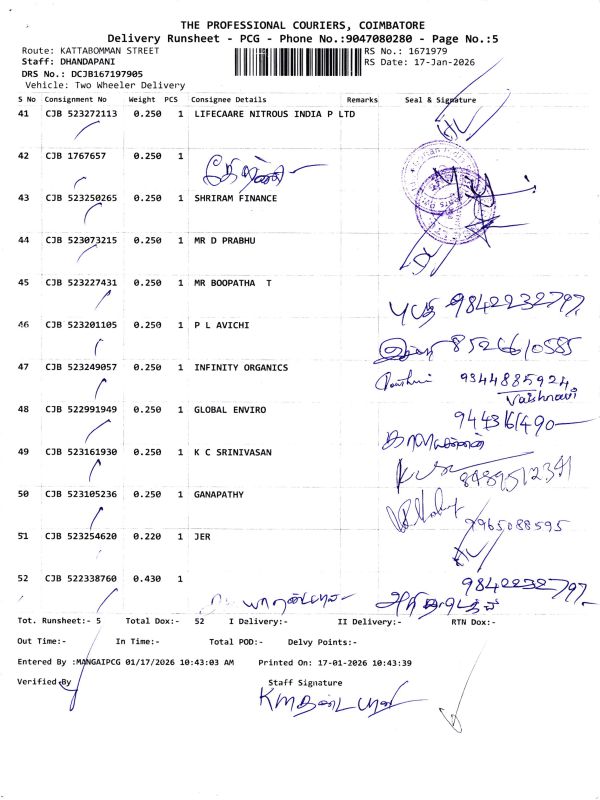 THE PROFESSIONAL COURIERS, COIMBATORE
Delivery Runsheet - PCG - Phone No.:9047080280 - Page No.:5
Route: KATTABOMMAN STREET RS No.: 1671979
Staff: DHANDAPANI RS Date: 17-Jan-2026
DRS No.: DCJB167197905
Vehicle: Two Wheeler Delivery
S No Consignment No Weight PCS Consignee Details Remarks Seal & Signature
41 CJB 523272113 0.250 1 LIFECAARE NITROUS INDIA P LTD
42 CJB 1767657 0.250 1
43 CJB 523250265 0.250 1 SHRIRAM FINANCE
44 CJB 523073215 0.250 1 MR D PRABHU
45 CJB 523227431 0.250 1 MR BOOPATHA T
9842232797
46 CJB 523201105 0.250 1 P L AVICHI
8526610585
47 CJB 523249057 0.250 1 INFINITY ORGANICS
9344885924
Vaishnavi
48 CJB 522991949 0.250 1 GLOBAL ENVIRO
49 CJB 523161930 0.250 1 K C SRINIVASAN
50 CJB 523105236 0.250 1 GANAPATHY
9965088595
51 CJB 523254620 0.220 1 JER
52 CJB 522338760 0.430 1
9842232797
Tot. Runsheet:- 5 Total Dox:- 52 I Delivery:- II Delivery:- RTN Dox:-
Out Time:- In Time:- Total POD:- Delvy Points:-
Entered By :MANGAIPCG 01/17/2026 10:43:03 AM Printed On: 17-01-2026 10:43:39
Verified By Staff Signature